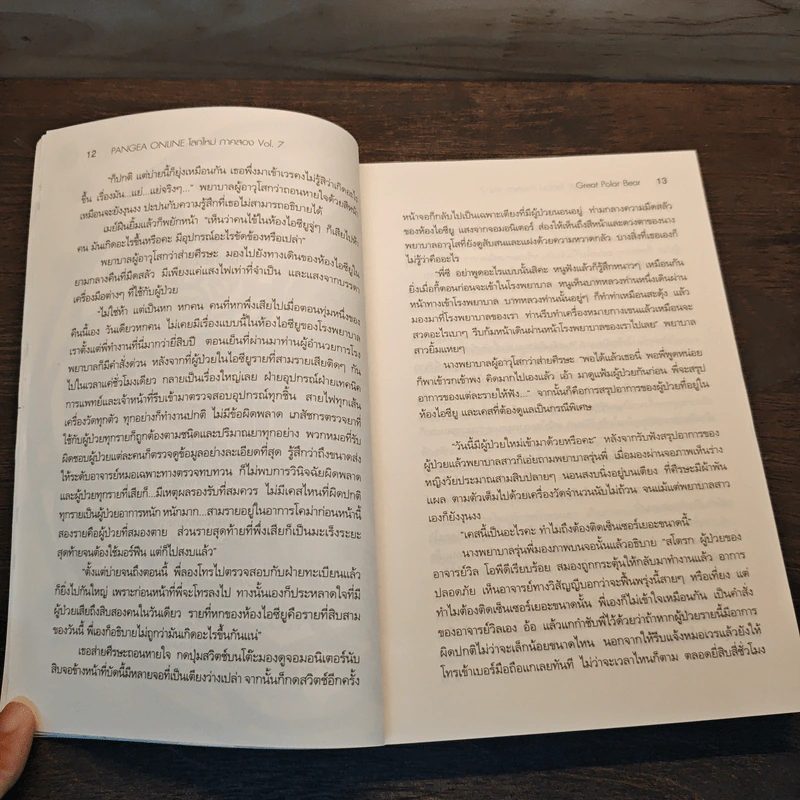 12 PANGEA ONLINE โลกใหม่ ภาคสอง Vol. 7
"ก็ปกติ แต่บ่ายนี้ก็ยุ่งเหมือนกัน เธอพึ่งมาเข้าเวรคงไม่รู้สิว่าเกิดอะไร
ขึ้น เรื่องมัน... แย่.. แย่จริงๆ..." พยาบาลผู้อาวุโสกว่าถอนหายใจด้วยสีหน้า
เหมือนจะยังงุนงง ปะปนกับความรู้สึกที่เธอไม่สามารถอธิบายได้
เมย์ฝืนยิ้มแล้วก็พยักหน้า "เห็นว่าคนไข้ในห้องไอซียูจู่ๆ ก็เสียไปตั้ง
คน มันเกิดอะไรขึ้นหรือคะ มีอุปกรณ์อะไรขัดข้องหรือเปล่า"
พยาบาลผู้อาวุโสกว่าส่ายศีรษะ มองไปยังทางเดินของห้องไอซียูใน
ยามกลางคืนที่มืดสลัว มีเพียงแค่แสงไฟเท่าที่จำเป็น และแสงจากบรรดา
เครื่องมือต่างๆ ที่ใช้กับผู้ป่วย
"ไม่ใช่ห้า แต่เป็นหก หกคน คนที่หกพึ่งเสียไปเมื่อตอนทุ่มหนึ่งของ
คืนนี้เอง วันเดียวหกคน ไม่เคยมีเรื่องแบบนี้ในห้องไอซียูของโรงพยาบาล
เราตั้งแต่พี่ทำงานที่นี่มากว่ายี่สิบปี ตอนเย็นที่ผ่านมาท่านผู้อำนวยการโรง
พยาบาลก็มีคำสั่งด่วน หลังจากที่ผู้ป่วยในไอซียูรายที่สามรายเสียติดๆ กัน
ไปในเวลาแค่ชั่วโมงเดียว กลายเป็นเรื่องใหญ่เลย ฝ่ายอุปกรณ์ฝ่ายเทคนิค
การแพทย์และเจ้าหน้าที่รีบเข้ามาตรวจสอบอุปกรณ์ทุกชิ้น สายไฟทุกเส้น
เครื่องวัดทุกตัว ทุกอย่างก็ทำงานปกติ ไม่มีข้อผิดพลาด เภสัชกรตรวจยาที่
ใช้กับผู้ป่วยทุกรายก็ถูกต้องตามชนิดและปริมาณยาทุกอย่าง พวกหมอที่รับ
ผิดชอบผู้ป่วยแต่ละคนก็ตรวจดูข้อมูลอย่างละเอียดที่สุด รู้สึกว่าถึงขนาดส่ง
ให้ระดับอาจารย์หมอเฉพาะทางตรวจทบทวน ก็ไม่พบการวินิจฉัยผิดพลาด
และผู้ป่วยทุกรายที่เสียก็...มีเหตุผลรองรับที่สมควร ไม่มีเคสไหนที่ผิดปกติ
ทุกรายเป็นผู้ป่วยอาการหนัก หนักมาก...สามรายอยู่ในอาการโคม่าก่อนหน้านี้
สองรายคือผู้ป่วยที่สมองตาย ส่วนรายสุดท้ายที่พึ่งเสียก็เป็นมะเร็งระยะ
สุดท้ายจนต้องใช้มอร์ฟีน แต่ก็ไปสงบแล้ว"
"ตั้งแต่บ่ายจนถึงตอนนี้ พี่ลองโทรไปตรวจสอบกับฝ่ายทะเบียนแล้ว
ก็ยิ่งไปกันใหญ่ เพราะก่อนหน้าที่พี่จะโทรลงไป ทางนั้นเองก็ประหลาดใจที่มี
ผู้ป่วยเสียถึงสิบสองคนในวันเดียว รายที่หกของห้องไอซียูคือรายที่สิบสาม
ของวันนี้ พี่เองก็อธิบายไม่ถูกว่ามันเกิดอะไรขึ้นกันแน่"
เธอส่ายศีรษะถอนหายใจ กดปุ่มสวิตช์บนโต๊ะมองดูจอมอนิเตอร์นับ
สิบจอข้างหน้าที่บัดนี้มีหลายจอที่เป็นเตียงว่างเปล่า จากนั้นก็กดสวิตช์อีกครั้ง
Great Polar Bear 13
หน้าจอก็กลับไปเป็นเฉพาะเตียงที่มีผู้ป่วยนอนอยู่ ท่ามกลางความมืดสลัว
ของห้องไอซียู แสงจากจอมอนิเตอร์ ส่องให้เห็นถึงสีหน้าและดวงตาของนาง
พยาบาลอาวุโสที่ยังดูสับสนและแฝงด้วยความหวาดกลัว บางสิ่งที่เธอเองก็
ไม่รู้ว่าคืออะไร
"พี่ซี อย่าพูดอะไรแบบนั้นสิคะ หนูฟังแล้วก็รู้สึกหนาวๆ เหมือนกัน
ยิ่งเมื่อกี้ตอนก่อนจะเข้าในโรงพยาบาล หนูเห็นบาทหลวงท่านหนึ่งเดินผ่าน
หน้าทางเข้าโรงพยาบาล บาทหลวงท่านนั้นอยู่ๆ ก็ทำท่าเหมือนสะดุ้ง แล้ว
มองมาที่โรงพยาบาลของเรา ท่านรีบทำเครื่องหมายกางเขนแล้วเหมือนจะ
สวดอะไรเบาๆ รีบก้มหน้าเดินผ่านหน้าโรงพยาบาลของเราไปเลย" พยาบาล
สาวยิ้มแหยๆ
นางพยาบาลผู้อาวุโสกว่าส่ายศีรษะ "พอได้แล้วเธอนี่ พอพี่พูดหน่อย
ก็พาเข้ารกเข้าพง คิดมากไปเองแล้ว เอ้า มาดูแฟ้มผู้ป่วยกันก่อน พี่จะสรุป
อาการของแต่ละรายให้ฟัง..." จากนั้นก็คือการสรุปอาการของผู้ป่วยที่อยู่ใน
ห้องไอซียู และเคสที่ต้องดูแลเป็นกรณีพิเศษ
"วันนี้มีผู้ป่วยใหม่เข้ามาด้วยหรือคะ" หลังจากรับฟังสรุปอาการของ
ผู้ป่วยแล้วพยาบาลสาวก็เอ่ยถามพยาบาลรุ่นพี่ เมื่อมองผ่านจอภาพเห็นร่าง
หญิงวัยประมาณสามสิบปลายๆ นอนสงบนิ่งอยู่บนเตียง ที่ศีรษะมีผ้าพัน
แผล ตามตัวเต็มไปด้วยเครื่องวัดจำนวนนับไม่ถ้วน จนแม้แต่พยาบาลสาว
เองก็ยังงุนงง
"เคสนี้เป็นอะไรคะ ทำไมถึงต้องติดเซ็นเซอร์เยอะขนาดนี้"
นางพยาบาลรุ่นพี่มองภาพบนจอนั้นแล้วอธิบาย "สโตรก ผู้ป่วยของ
อาจารย์วิล โอพีดีเรียบร้อย สมองถูกกระตุ้นให้กลับมาทำงานแล้ว อาการ
ปลอดภัย เห็นอาจารย์ทางวิสัญญีบอกว่าจะฟื้นพรุ่งนี้สายๆ หรือเที่ยง แต่
ทำไมต้องติดเซ็นเซอร์เยอะขนาดนั้น พี่เองก็ไม่เข้าใจเหมือนกัน เป็นคำสั่ง
ของอาจารย์วิลเอง อ้อ แล้วแกกำชับพี่ไว้ด้วยว่าถ้าหากผู้ป่วยรายนี้มีอาการ
ผิดปกติไม่ว่าจะเล็กน้อยขนาดไหน นอกจากให้รีบแจ้งหมอเวรแล้วยังให้
โทรเข้าเบอร์มือถือแกเลยทันที ไม่ว่าจะเวลาไหนก็ตาม ตลอดยี่สิบสี่ชั่วโมง